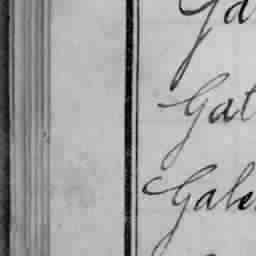 Ga
Gat
Gale